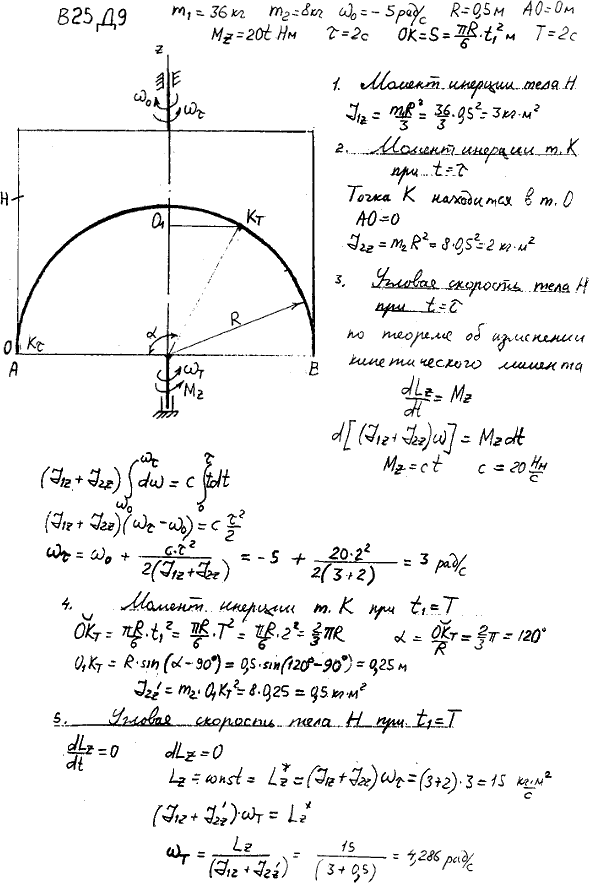 В25, Д9
m₁ = 36 кг m₂ = 8 кг ω₀ = -5 рад/с R = 0,5 м AO = 0 м
M_z = 20t Нм τ = 2с OK = S = πR/6 · t₁² м T = 2с
z
ω₀ ω_τ
H
O₁ K_T
α R
O K_τ
A B
ω_T
M_z
1. Момент инерции тела H
J₁z = m₁R²/3 = 36/3 · 0,5² = 3 кг·м²
2. Момент инерции т. K
при t=τ
Точка K находится в т. O
AO=0
J₂z = m₂R² = 8·0,5² = 2 кг·м²
3. Угловая скорость тела H
при t=τ
по теореме об изменении
кинетического момента
dLz/dt = Mz
d[(J₁z + J₂z)ω] = Mz dt
Mz = ct c = 20 Нм/с
(J₁z + J₂z) ∫_ω₀^ω_τ dω = c ∫_0^τ tdt
(J₁z + J₂z)(ω_τ - ω₀) = c τ²/2
ω_τ = ω₀ + c·τ²/2(J₁z+J₂z) = -5 + 20·2²/2(3+2) = 3 рад/с
4. Момент инерции т. K при t₁=T
OK_T = πR/6 · t₁² = πR/6 · T² = πR/6 · 2² = 2/3 πR α = OK_T/R = 2/3 π = 120°
O₁K_T = R·sin(α-90°) = 0,5·sin(120°-90°) = 0,25 м
J₂z' = m₂·O₁K_T² = 8·0,25 = 0,5 кг·м²
5. Угловая скорость тела H при t₁=T
dLz/dt = 0 dLz = 0
Lz = const = Lz* = (J₁z + J₂z)ω_τ = (3+2)·3 = 15 кг·м²/с
(J₁z + J₂z')·ω_T = Lz*
ω_T = Lz/(J₁z + J₂z') = 15/(3+0,5) = 4,286 рад/с